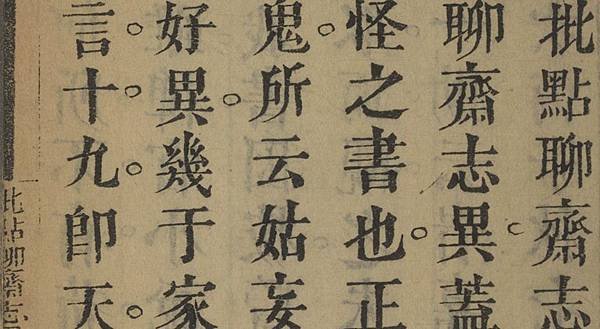 批點聊齋志
聊齋志異。蓋
怪之書也。正
鬼。所云姑妄
好異。幾于家
言。十。九。卽天。
批點聊齋志